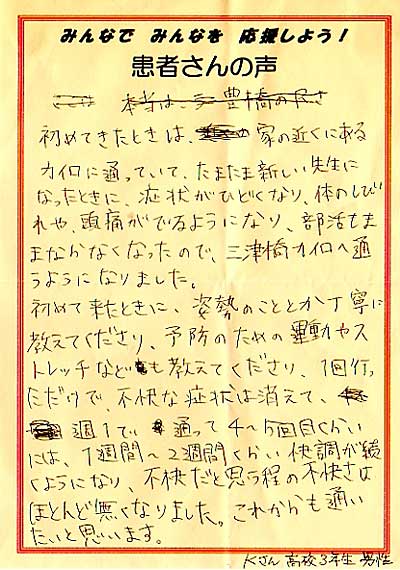 みんなで みんなを 応援しよう！
患者さんの声
本当は、豊橋の
初めてきたときは、家の近くにある
カイロに通っていて、たまたま新しい先生に
なったときに、症状がひどくなり、体のしび
れや、頭痛がでるようになり、部活もま
まなかなくなったので、三津橋カイロへ通
うようになりました。
初めて来たときに、姿勢のこととか丁寧に
教えてくださり、予防のための運動やス
トレッチなども教えてくださり、1回行っ
ただけで、不快な症状は消えて、
週1で 通って4〜5回目くらい
には、1週間〜2週間くらい快調が続
くようになり、不快だと思う程の不快さは
ほとんど無くなりました。これからも通い
たいと思います。
Kさん 高校3年生 男性